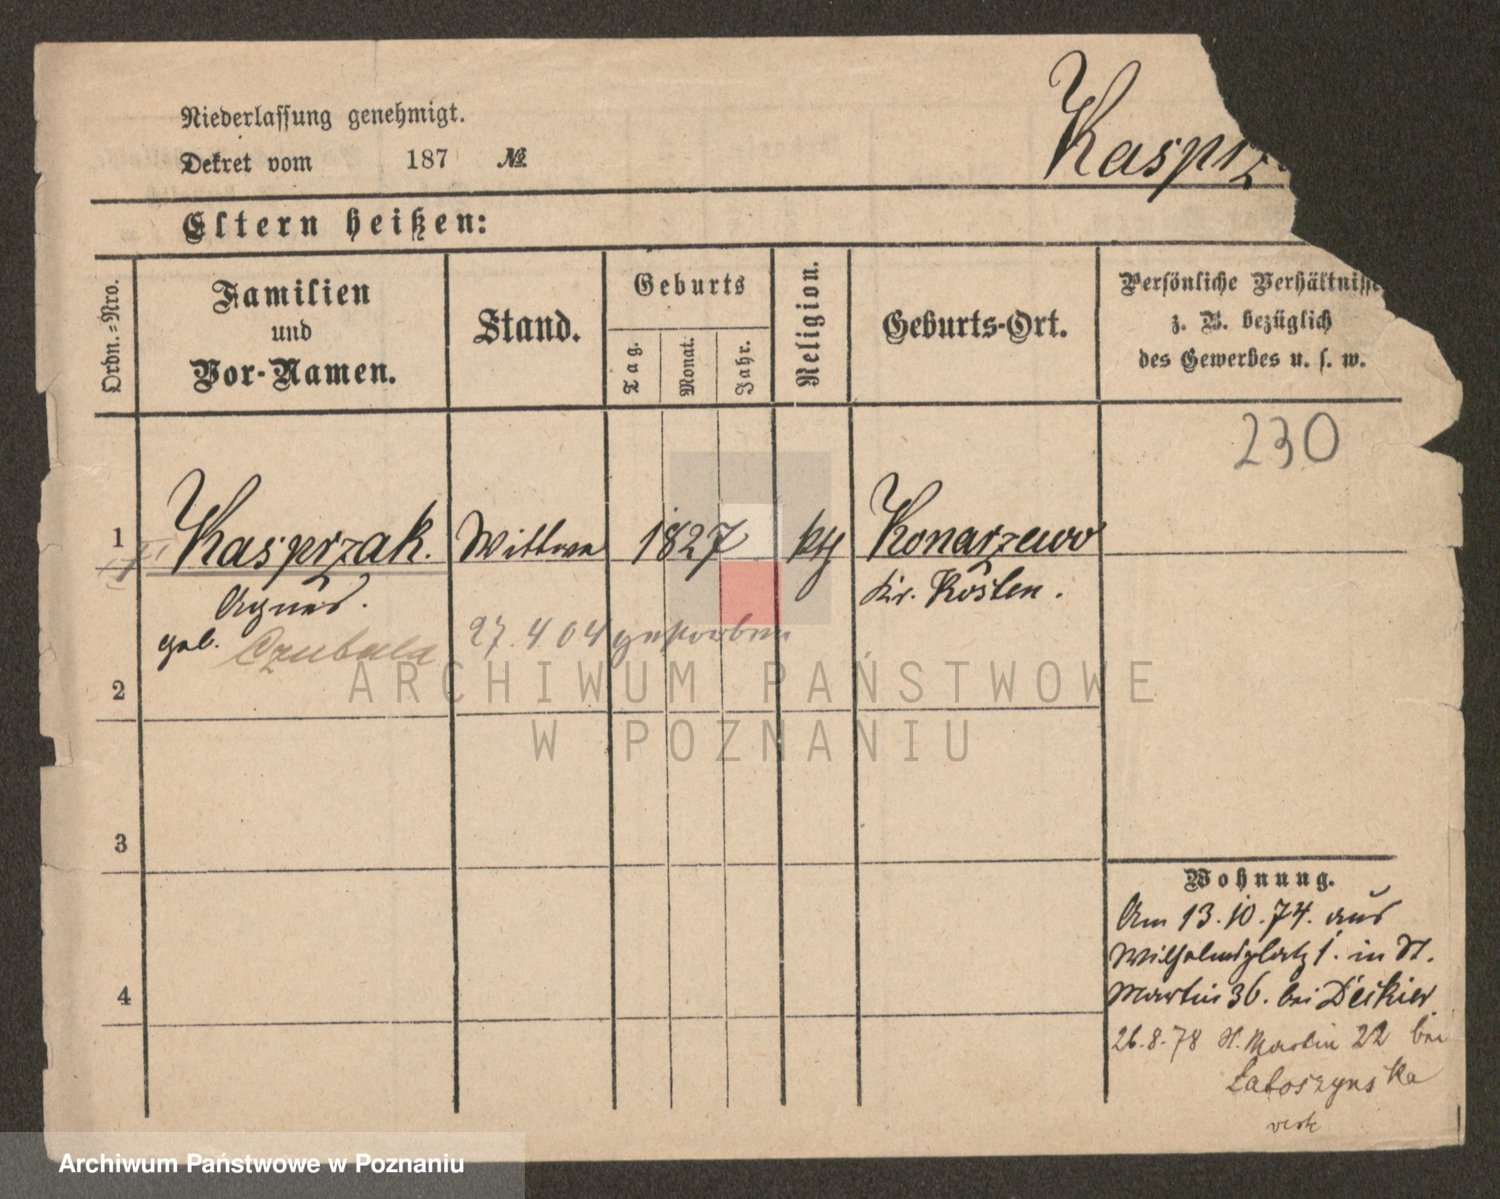 Niederlassung genehmigt.
Dekret vom 187 №
Kasprz
Eltern heißen:
Ordn.-Nro.
Familien
und
Vor-Namen.
Stand.
Geburts
Tag.
Monat.
Jahr.
Religion.
Geburts-Ort.
Persönliche Verhältnisse
z. B. bezüglich
des Gewerbes u. s. w.
230
1 Kasprzak. Wittwe 1827 kth Konarzewo
Agnes. Kr. Kosten.
geb. Czubala 27.4.04 gestorben
2
3
4
Wohnung.
Am 13.10.74. aus
Wilhelmsplatz 1. in St.
Martin 36. bei
26.8.78 St. Martin 22 bei
ARCHIWUM PAŃSTWOWE
W POZNANIU
Archiwum Państwowe w Poznaniu